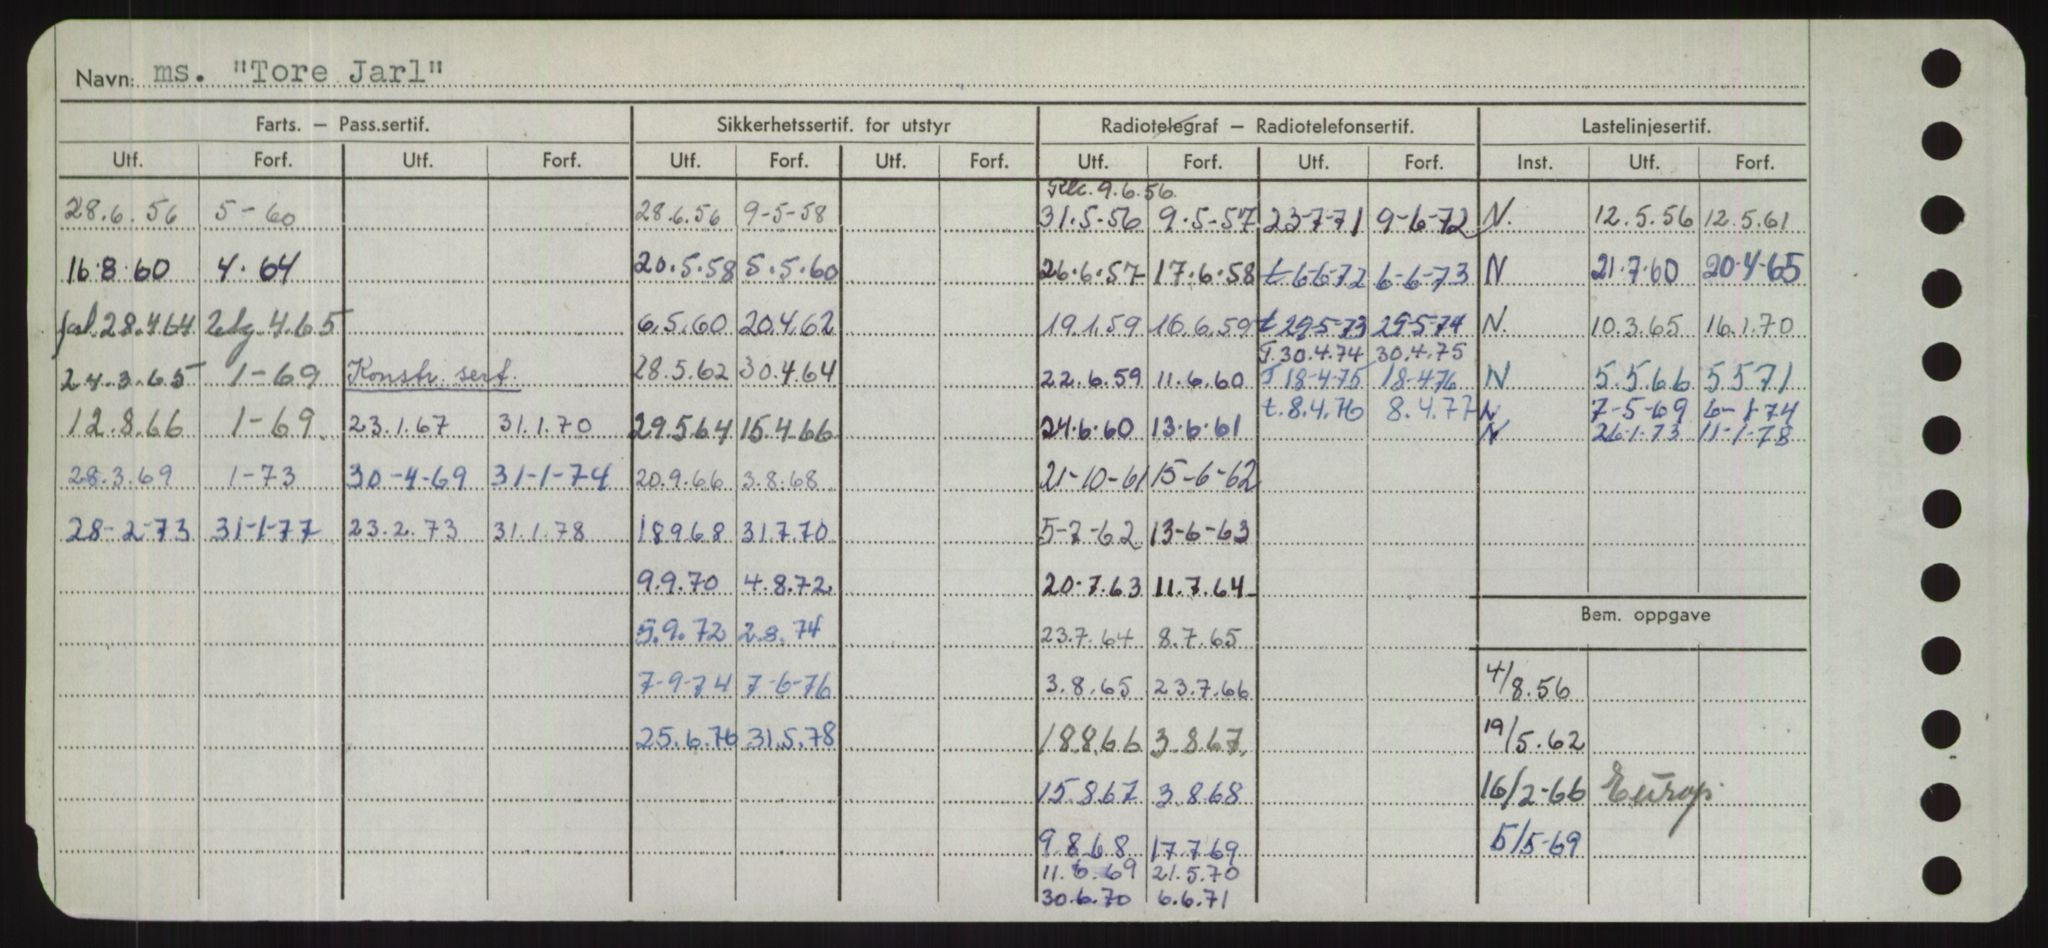 Navn: ms. "Tore Jarl"
Farts. – Pass.sertif. Sikkerhetssertif. for utstyr Radiotelegraf – Radiotelefonsertif. Lastelinjesertif.
Utf. Forf. Utf. Forf. Utf. Forf. Utf. Forf. Utf. Forf. Utf. Forf. Inst. Utf. Forf.
9.6.56.
28.6.56 5-60 28.6.56 9-5-58 31.5-56 9.5-57 23-7-71 9-6-72 N. 12.5.56 12.5.61
16.8.60 4.64 20.5.58 5.5.60 26.6.57 17.6.58 t 6-6-72 6-6-73 N 21.7.60 20.4-65
28.4.64 4.65 6.5.60 20.4.62 19.1.59 16.6.59 t 29-5-73 29-5-74 N. 10.3.65 16.1.70
T. 30.4.74 30.4.75
24.3.65 1-69 Konstr. sert. 28.5.62 30.4.64 22.6.59 11.6.60 T 18-4-75 18-4-76 N 5.5.66 5.5.71
t. 8.4.76 8.4.77 N 7-5-69 6-1-74
12.8.66 1-69. 23.1.67 31.1.70 29.5.64 15.4.66 24.6.60 13.6.61 N 26-1-73 11-1-78
28.3.69 1-73 30-4-69 31-1-74 20.9.66 3.8.68 21-10-61 15-6-62
28-2-73 31-1-77 23.2.73 31.1.78 18.9.68 31.7.70 5-7-62 13-6-63
9.9.70 4.8.72. 20.7.63 11.7.64
Bem. oppgave
5.9.72 2.8.74 23.7.64 8.7.65
7-9-74 7-6-76 3.8.65 23.7.66 4/8.56
25.6.76 31.5.78 18.8.66 3.8.67. 19/5.62
15.8.67 3.8.68 16/2-66 Europ.
9.8.68 17.7.69 5/5-69
11.6.69 21.5.70
30.6.70 6.6.71